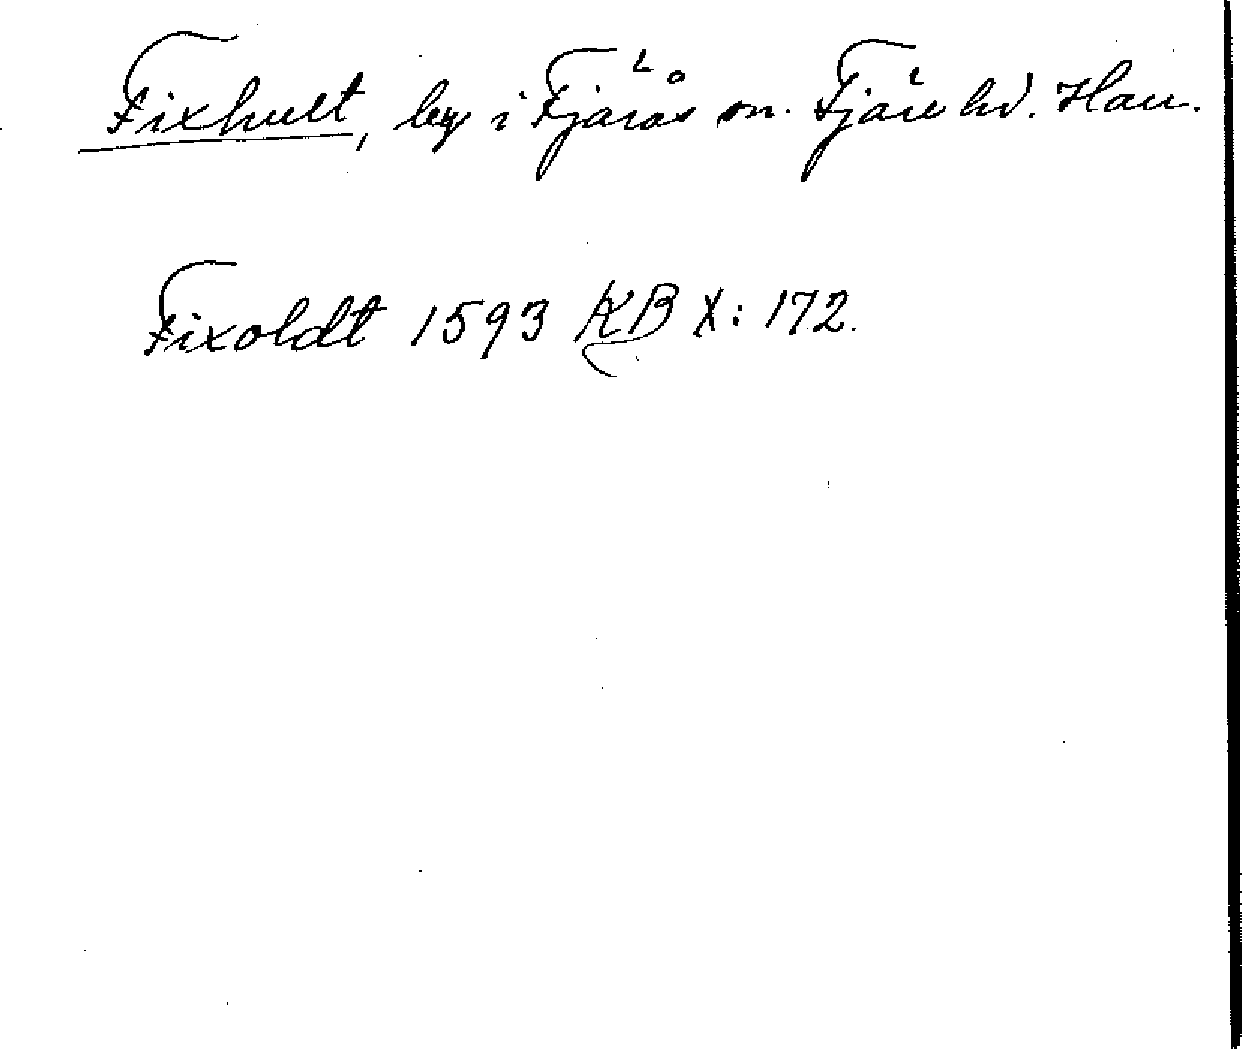 Fixhult, by i Fjärås sn. Fjäre hd. Hall.
Fixoldt 1593 KB X: 172.